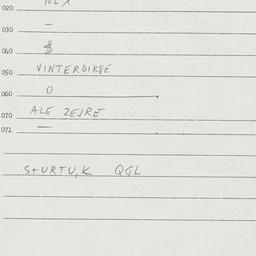 020 NLX
030 —
040 $
050 VINTERDIKSE
060 0
070 ALE ZEJRE
071 —
S+URTU,K QGL